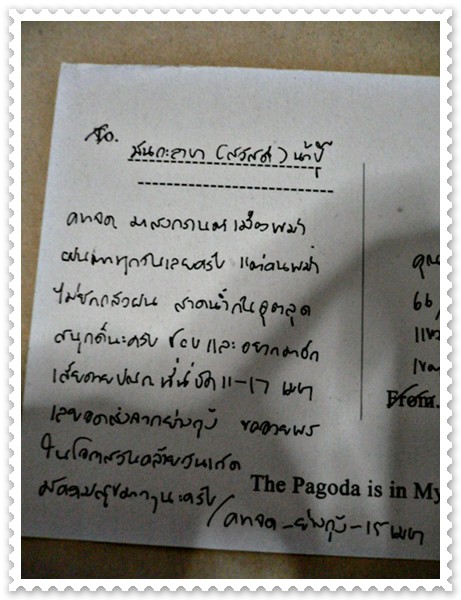 To.
มินกะลาบา (สวัสดี) น้าปุ๊
มาสงกรานต์เมืองพม่า
ฝนตกทุกวันเลยครับ แต่คนพม่า
ไม่ยักกลัวฝน สาดน้ำกันอุตลุด
สนุกดีนะครับ ชอบและอยากมาอีก
เสียดายปณ. ที่นี่ปิด 11-17 เมษา
เลยอดส่งจากย่างกุ้ง ขออวยพร
ในโอกาสวันคล้ายวันเกิด
มีความสุขมากๆนะครับ
- ย่างกุ้ง - 15 เมษา
คุณ
66/
From.
The Pagoda is in My